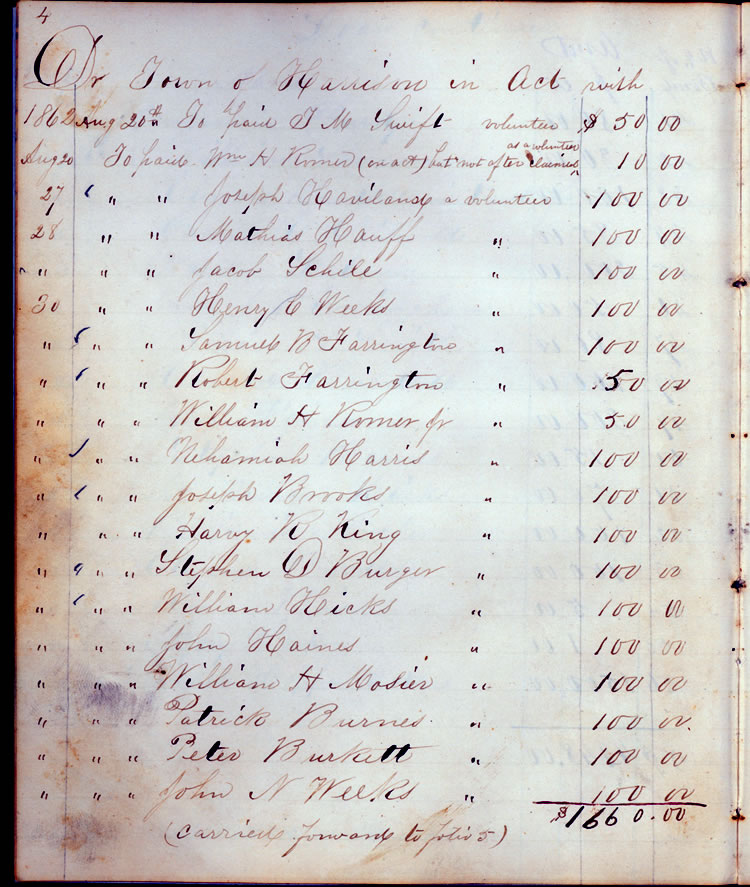 4
Dr Town of Harrison in Act with
1862 Aug 20th To paid J M Swift volunteer $ 50 00
as a volunteer
Aug 20 To paid Wm H Romer (on act) but not after claimed 10 00
27 " " Joseph Haviland a volunteer 100 00
28 " " Mathias Hauff " 100 00
" " " Jacob Schile " 100 00
30 " " Henry C Weeks " 100 00
" " " Samuel B Farrington " 100 00
" " " Robert Farrington " 50 00
" " " William H Romer Jr " 50 00
" " " Nehamiah Harris " 100 00
" " " Joseph Brooks " 100 00
" " " Harvy R King " 100 00
" " " Stephen D Burger " 100 00
" " " William Hicks " 100 00
" " " John Haines " 100 00
" " " William H Mosier " 100 00
" " " Patrick Burnes " 100 00
" " " Peter Burkett " 100 00
" " " John N Weeks " 100 00
$1660.00
(carried forward to folio 5)